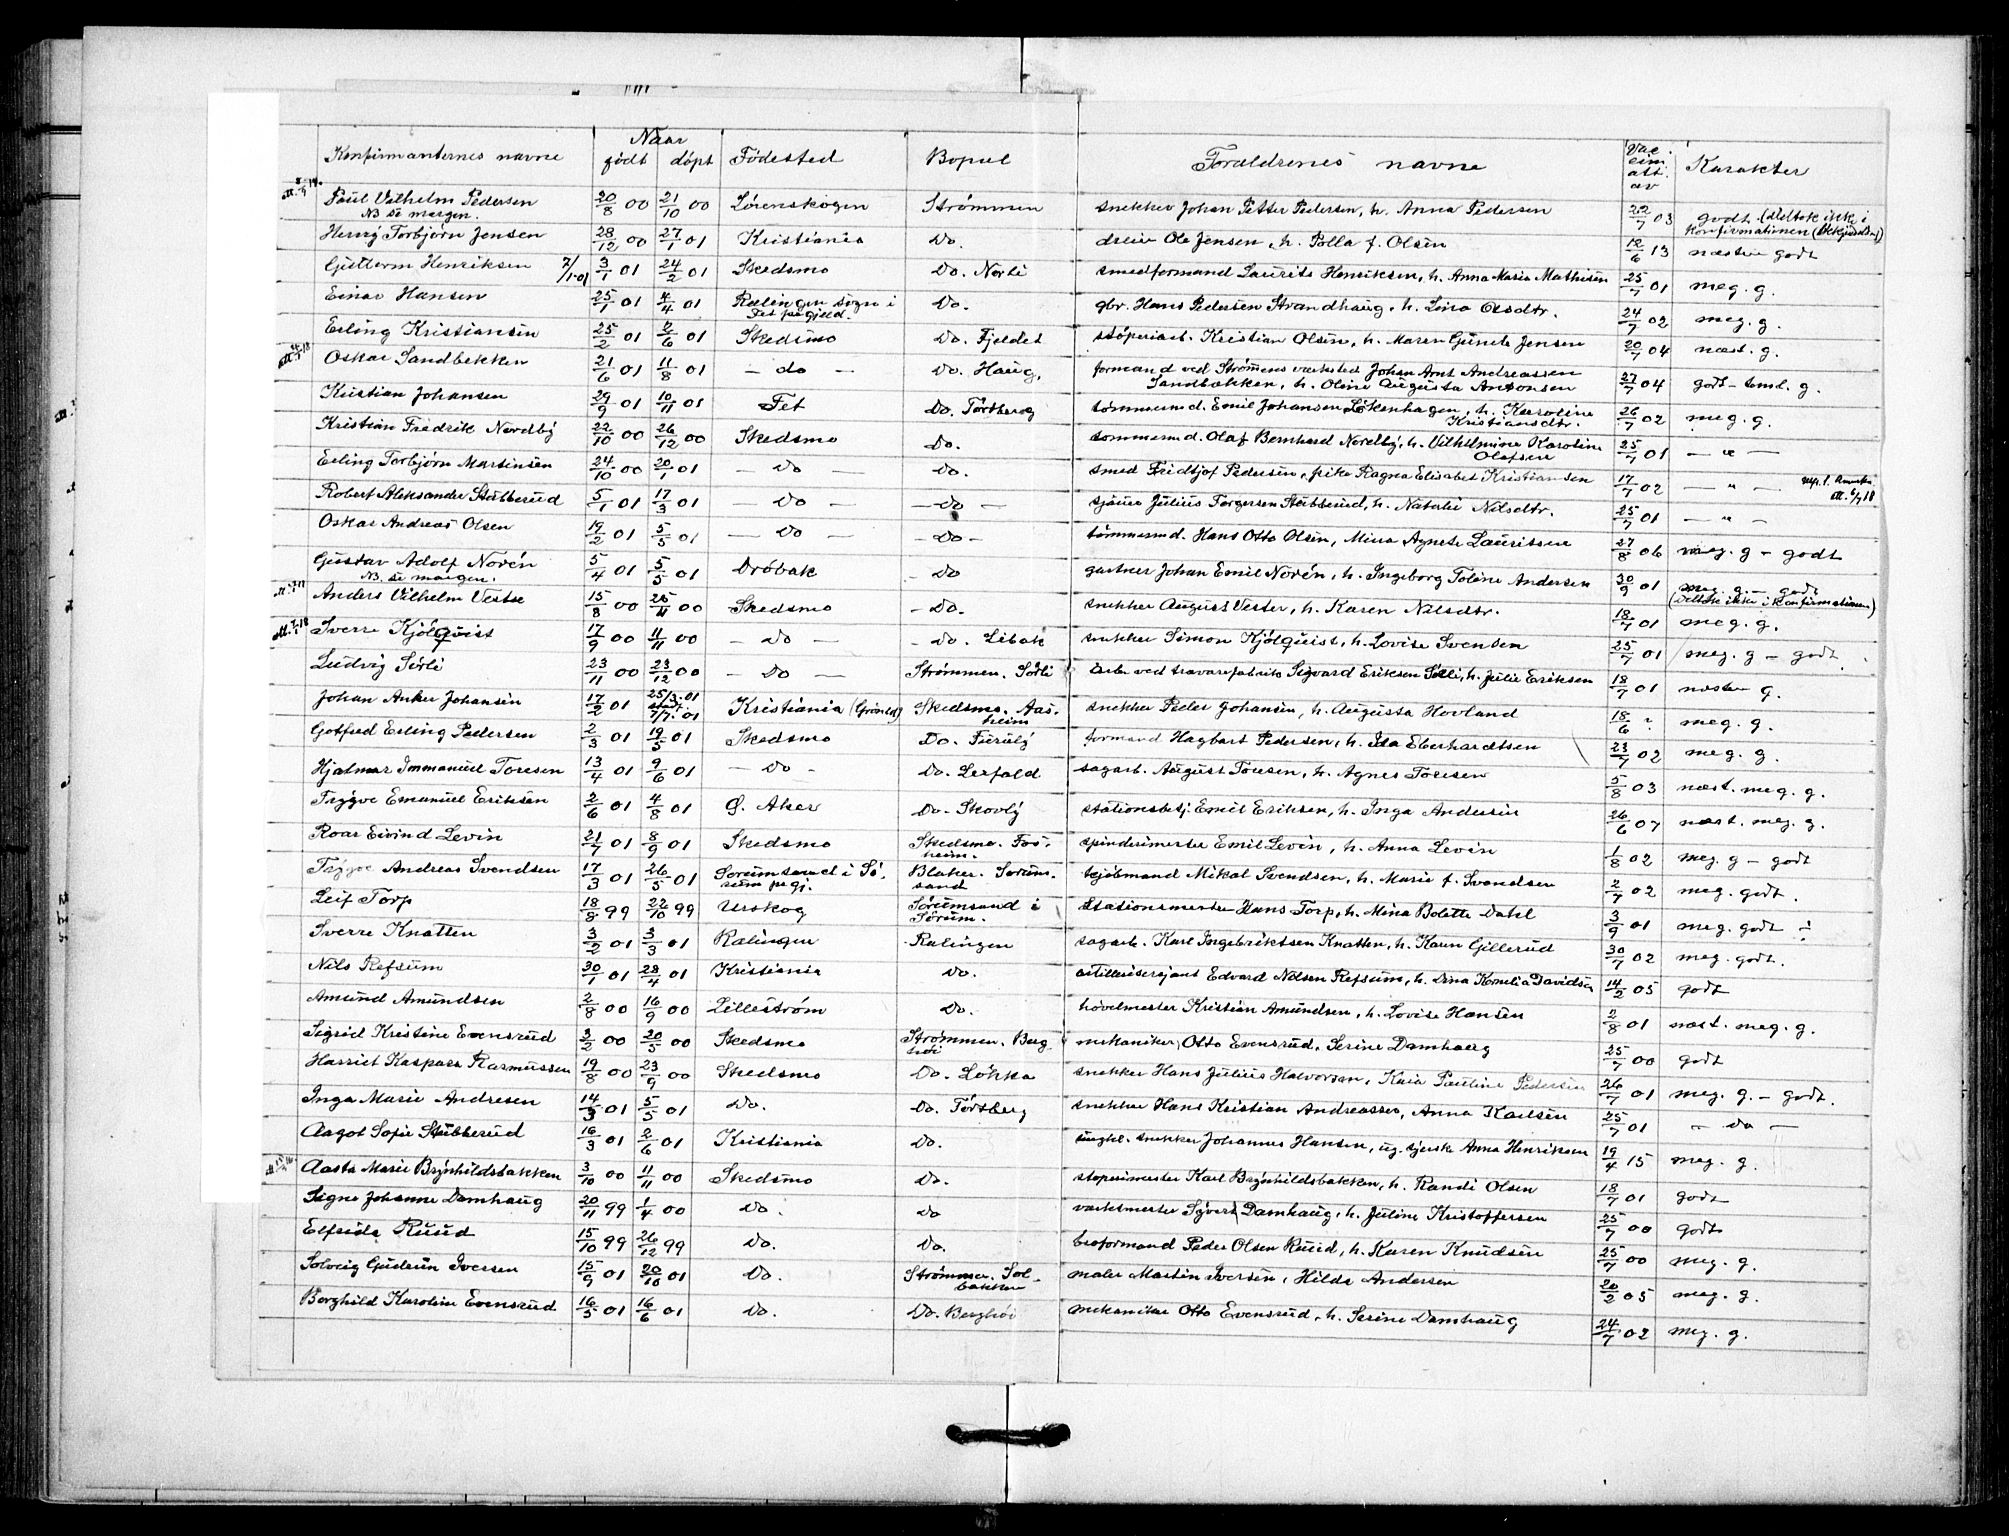 Konfirmanternes navne | Naar født | døpt | Fødested | Bopæl | Forældrenes navne | Vac. cim. att. av | Karakter
Paul Vilhelm Pedersen NB se margen. | 20/8 00 | 21/10 00 | Lørenskogen | Strømmen | snekker Johan Petter Pedersen, h. Anna Pedersen | 22/7 03 | godt. (deltok ikke i konfirmationen
Henry Torbjørn Jensen | 28/12 00 | 27/1 01 | Kristiania | Do. | dreier Ole Jensen, h. Polla f. Olsen | 12/6 13 | næsten godt
Guttorm Henriksen 2/1-01 | 3/1 01 | 24/2 01 | Skedsmo | Do. Norli | smedformand Laurits Henriksen, h. Anna Maria Mathisen | 25/7 01 | meg. g.
Einar Hansen | 25/1 01 | 4/4 01 | Rælingen sogn i Fet pr.gjeld. | Do. | gbr. Hans Pedersen Strandhaug, h. Lina Olsdtr. | 24/7 02 | meg. g.
Erling Kristiansen | 25/2 01 | 2/6 01 | Skedsmo | Do. Fjeldet | støperiarb. Kristian Olsen, h. Maren Gunete Jensen | 20/7 04 | næst. g.
Oskar Sandbekken | 21/6 01 | 11/8 01 | — do — | Do. Haug. | formand ved Strømmens værksted Johan Arnt Andreassen Sandbakken, h. Oline Augusta Antonsen | 27/7 04 | godt - temel. g.
Kristian Johansen | 29/9 01 | 10/11 01 | Fet | Do. Tørtberg | tømmermd. Emil Johansen Løkenhagen, h. Karoline Kristiansdtr. | 26/7 02 | meg. g.
Kristian Fredrik Nordby | 22/10 00 | 26/12 00 | Skedsmo | Do. | tømmermd. Olaf Bernhard Nordby, h. Vilhelmine Karoline Olafsen | 25/7 01 | — " —
Erling Torbjørn Martinsen | 24/10 00 | 20/1 01 | — Do — | Do. | smed Fridtjof Pedersen, pike Ragna Elisabet Kristiansen | 17/7 02 | — " —
Robert Aleksander Stubberud | 5/1 01 | 17/3 01 | Do — | — Do — | Julius Torgersen Stubberud, h. Natalie Nilsdtr. | 25/7 01 | — " —
Oskar Andreas Olsen | 19/2 01 | 5/5 01 | — Do — | — Do — | tømmermd. Hans Otto Olsen, Mina Agnete Lauritsen | 27/8 06 | meg. g - godt
Gustav Adolf Norén NB. se margen. | 5/4 01 | 5/5 01 | Drøbak | — Do | gartner Johan Emil Norén, h. Ingeborg Toline Andersen | 30/9 01 | meg. g. - godt (deltok ikke i konfirmationen)
Anders Vilhelm Vestre | 15/8 00 | 25/11 00 | Skedsmo | — Do. | snekker August Vester, h. Karen Nilsdtr. | 18/7 01 | meg. g.
Sverre Kjølqvist | 17/9 00 | 11/11 00 | — Do — | Do. Libak | snekker Simon Kjølquist, h. Lovise Svensen | 25/7 01 | meg. g - godt
Ludvig Sørli | 23/11 00 | 23/12 00 | — Do — | Strømmen. Sørli | arb. ved travarefabrik Sigvard Eriksen Sørli, h. Julie Eriksen | 18/7 01 | næsten g.
Johan Anker Johansen | 17/2 01 | 25/3-01 stadf. 7/7-01 | Kristiania (Grønland) | Skedsmo. Aasheim | snekker Peder Johansen, h. Augusta Hovland | 18/6 ? | meg. g.
Gotfred Erling Pedersen | 2/3 01 | 19/5 01 | Skedsmo | Do. Furuly | formand Hagbart Pedersen, h. Ida Eberhardtsen | 23/7 02 | meg. g.
Hjalmar Immanuel Toresen | 13/4 01 | 9/6 01 | — Do - | Do. Leifald | sagarb. August Toresen, h. Agnes Toresen | 5/8 03 | næst. meg. g.
Trygve Emanuel Eriksen | 2/6 01 | 4/8 01 | Ø. Aker | Do. Skovly | stationsbetj. Emil Eriksen, h. Inga Andersen | 26/6 07 | næst. meg. g.
Roar Eivind Levin | 21/7 01 | 8/9 01 | Skedsmo | Skedsmo. Fosheim. | spinderimester Emil Levin, h. Anna Levin | 1/8 02 | meg. g - godt
Trygve Andreas Svendsen | 17/3 01 | 26/5 01 | Sørumsand i Sørum pr.gj. | Blaker. Sørumsand | kjøbmand Mikal Svendsen, h. Marie f. Svendsen | 2/7 02 | meg. godt.
Leif Torp | 18/8 99 | 22/10 99 | Urskog | Sørumsand i Sørum. | Stationsmester Hans Torp, h. Mina Bolette Dahl | 3/9 01 | meg. godt ÷
Sverre Knatten | 3/2 01 | 3/3 01 | Rælingen | Rælingen | sagarb. Karl Ingebriktsen Knatten, h. Karen Gillerud | 30/7 02 | meg. godt.
Nils Refsum | 30/1 01 | 28/4 01 | Kristiania | Do. | artillerisersjant Edvard Nilsen Refsum, h. Dina Kornelia Davidsen | 14/2 05 | godt
Amund Amundsen | 2/8 00 | 16/9 00 | Lillestrøm | Do. | høvelmester Kristian Amundsen, h. Lovise Hansen | 2/8 01 | næst. meg. g.
Sigrid Kristine Evensrud | 3/2 00 | 20/5 00 | Skedsmo | Strømmen. Berghøi | mekaniker Otto Evensrud, Serine Damhaug | 25/7 00 | godt
Harriet Kaspara Rasmussen | 19/8 00 | 23/9 00 | Skedsmo | Do. Løkka | snekker Hans Julius Halvorsen, Kaia Pauline Pedersen | 26/7 01 | meg. g. - godt.
Inga Marie Andresen | 14/3 01 | 5/5 01 | Do. | Do. Tørtberg | snekker Hans Kristian Andreassen, Anna Karlsen | 25/7 01 | — do —
Aagot Sofie Stubberud | 16/3 01 | 2/6 01 | Kristiania | Do. | ungkl. snekker Johannes Hansen, ug. Anna Henriksen | 19/4 15 | meg. g.
Aasta Marie Brynhildsbakken | 3/10 00 | 11/11 00 | Skedsmo | Do. | støperimester Karl Brynhildsbakken, h. Randi Olsen | 18/7 01 | godt
Signe Johanne Damhaug | 20/11 99 | 1/4 00 | Do. | Do | værkmester Syvert Damhaug, h. Juline Kristoffersen | 25/7 00 | godt
Elfrida Ruud | 15/10 99 | 26/12 99 | Do. | Do. | broformand Peder Olsen Ruud, h. Karen Knudsen | 25/7 00 | meg. g.
Solveig Gudrun Iversen | 15/9 01 | 20/10 01 | Do. | Strømmen. Solbakken | maler Martin Iversen, Hilda Andersen | 20/2 05 | meg. g.
Borghild Karoline Evensrud | 16/5 01 | 16/6 01 | Do. | Do. Berghøi | mekaniker Otto Evensrud, h. Serine Damhaug | 24/7 02 | meg. g.